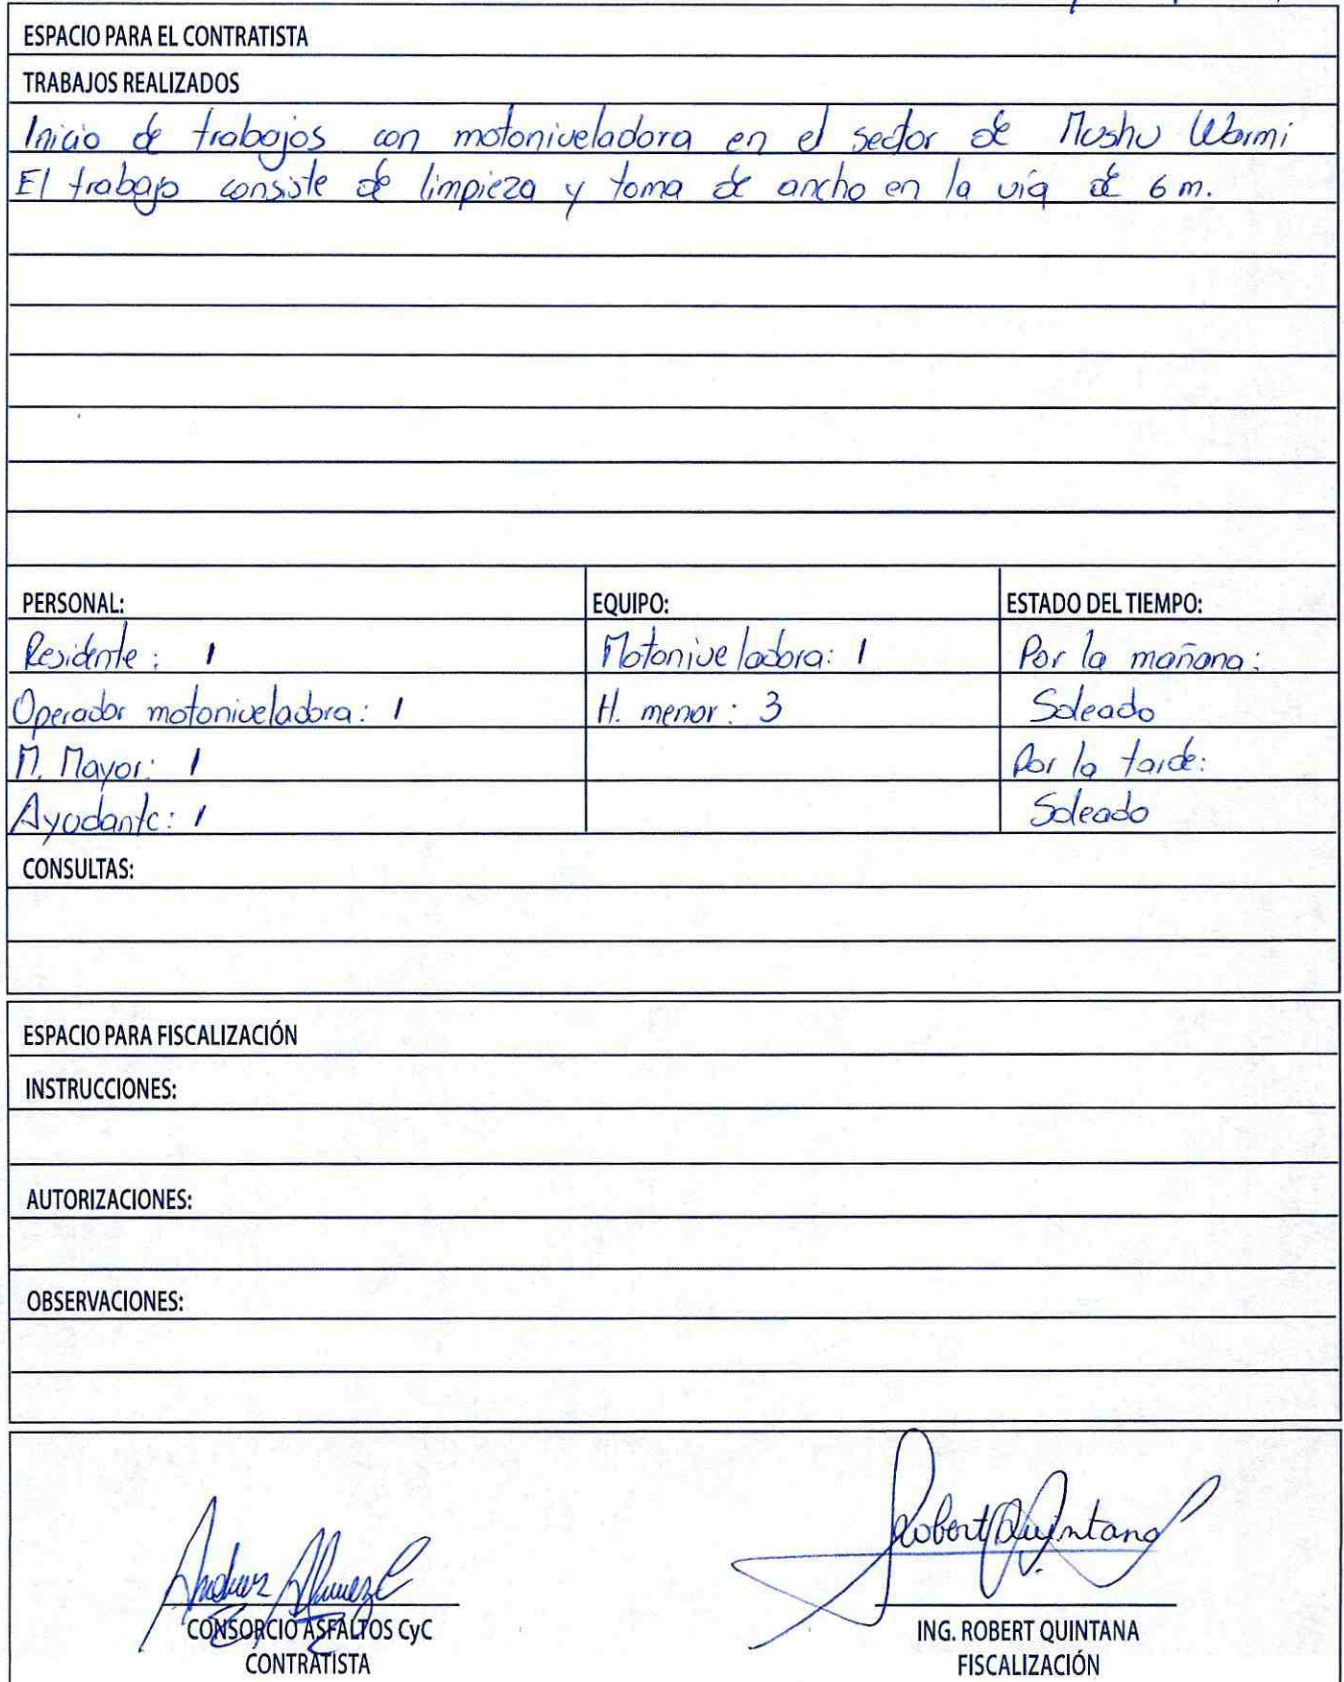 ESPACIO PARA EL CONTRATISTA
TRABAJOS REALIZADOS
Inicio de trabajos con motoniveladora en el sector de Mushu Warmi
El trabajo consiste de limpieza y toma de ancho en la vía de 6 m.
PERSONAL: EQUIPO: ESTADO DEL TIEMPO:
Residente: 1 Motoniveladora: 1 Por la mañana:
Operador motoniveladora: 1 H. menor: 3 Soleado
M. Mayor: 1 Por la tarde:
Ayudante: 1 Soleado
CONSULTAS:
ESPACIO PARA FISCALIZACIÓN
INSTRUCCIONES:
AUTORIZACIONES:
OBSERVACIONES:
Robert Quintana
CONSORCIO ASFALTOS CyC ING. ROBERT QUINTANA
CONTRATISTA FISCALIZACIÓN